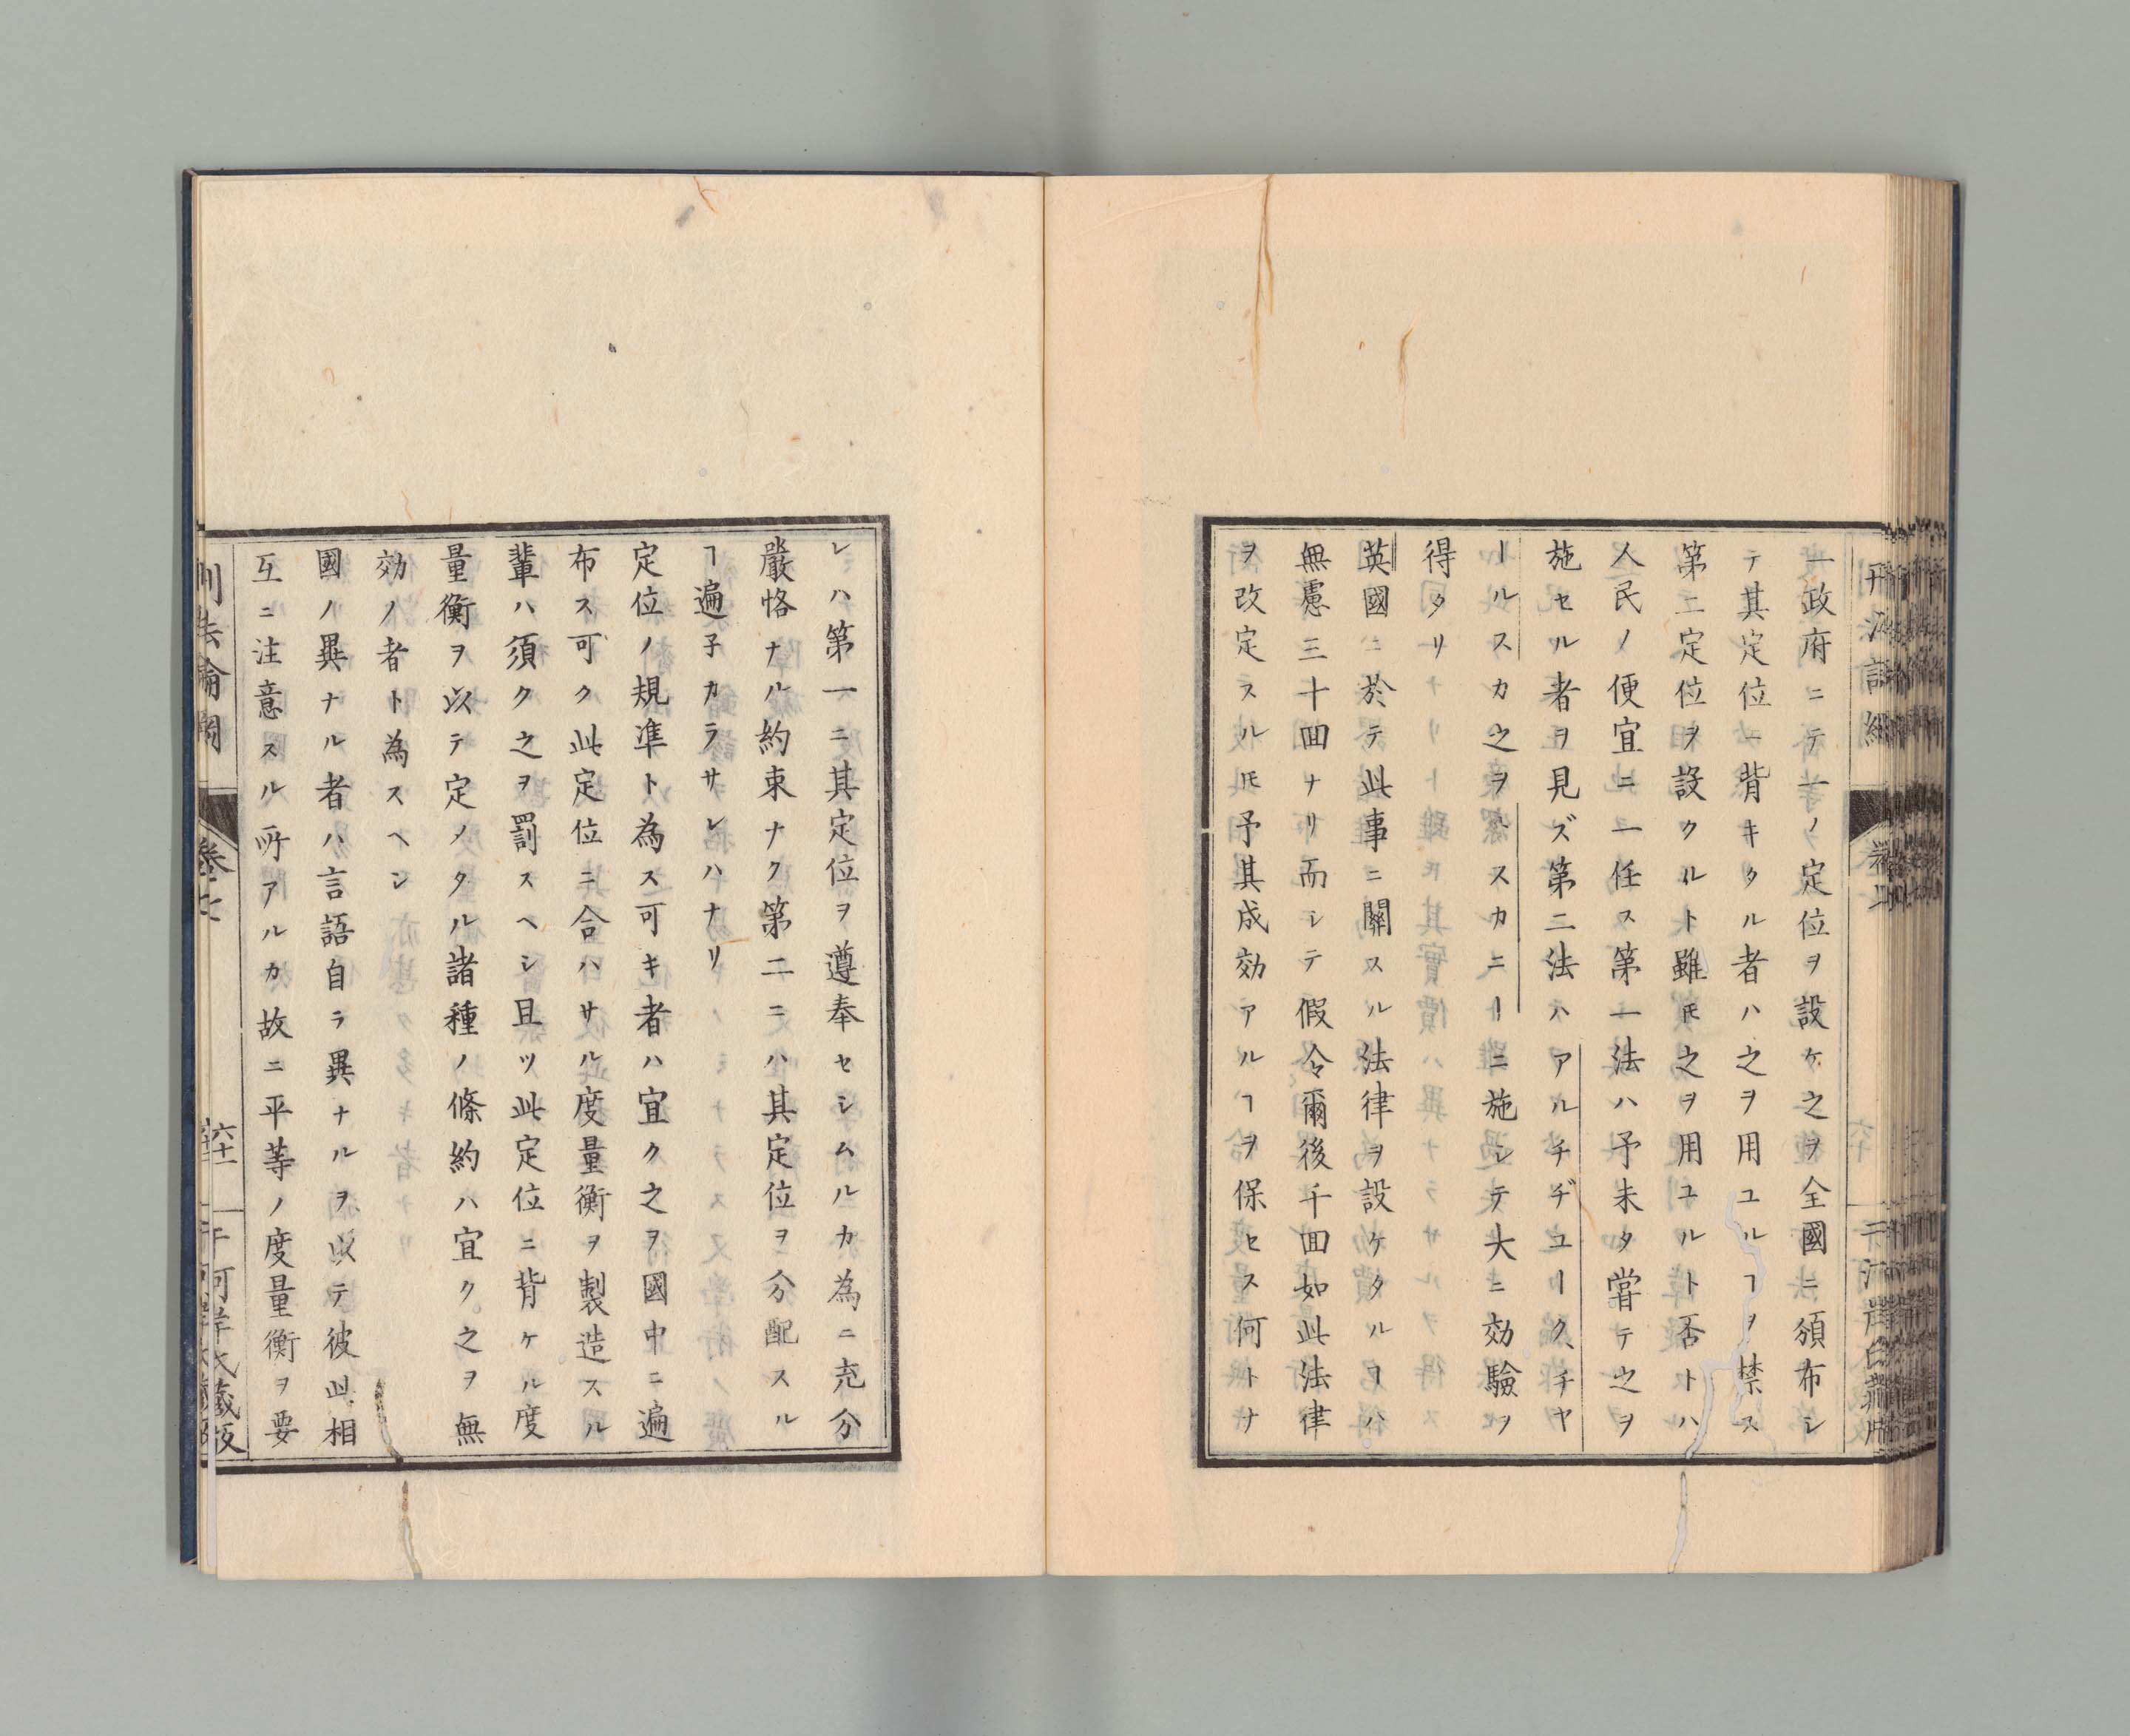 一政府ニテ一ノ定位ヲ設ケ之ヲ全國ニ頒布シ
テ其定位ニ背キタル者ハ之ヲ用ユルヿヲ禁ス
第二定位ヲ設クルト雖𪜈之ヲ用ユルト否トハ
人民ノ便宜ニ一任ス第一法ハ予未タ甞テ之ヲ
施セル者ヲ見ズ第二法ハアルチヂユークヽチヤ
ールスカ之ヲトスカニーニ施シテ大ニ効驗ヲ
得タリ
英國ニ於テ此事ニ關スル法律ヲ設ケタルヿハ
無慮三十回ナリ而シテ假令爾後千回如此法律
ヲ改定スル𪜈予其成効アルヿヲ保セス何トナ
レハ第一ニ其定位ヲ遵奉セシムルカ為ニ充分
嚴恪ナル約束ナク第二ニハ其定位ヲ分配スル
ヿ遍子カラサレハナリ
定位ノ規凖ト為ス可キ者ハ宜ク之ヲ國中ニ遍
布ス可ク此定位ニ合ハサル度量衡ヲ製造スル
輩ハ須ク之ヲ罰スヘシ且ツ此定位ニ背ケル度
量衡ヲ以テ定メタル諸種ノ條約ハ宜ク之ヲ無
効ノ者ト為スヘシ
國ノ異ナル者ハ言語自ラ異ナルヲ以テ彼此相
互ニ注意スル所アルカ故ニ平等ノ度量衡ヲ要
卷七
六十一
河岸氏藏版